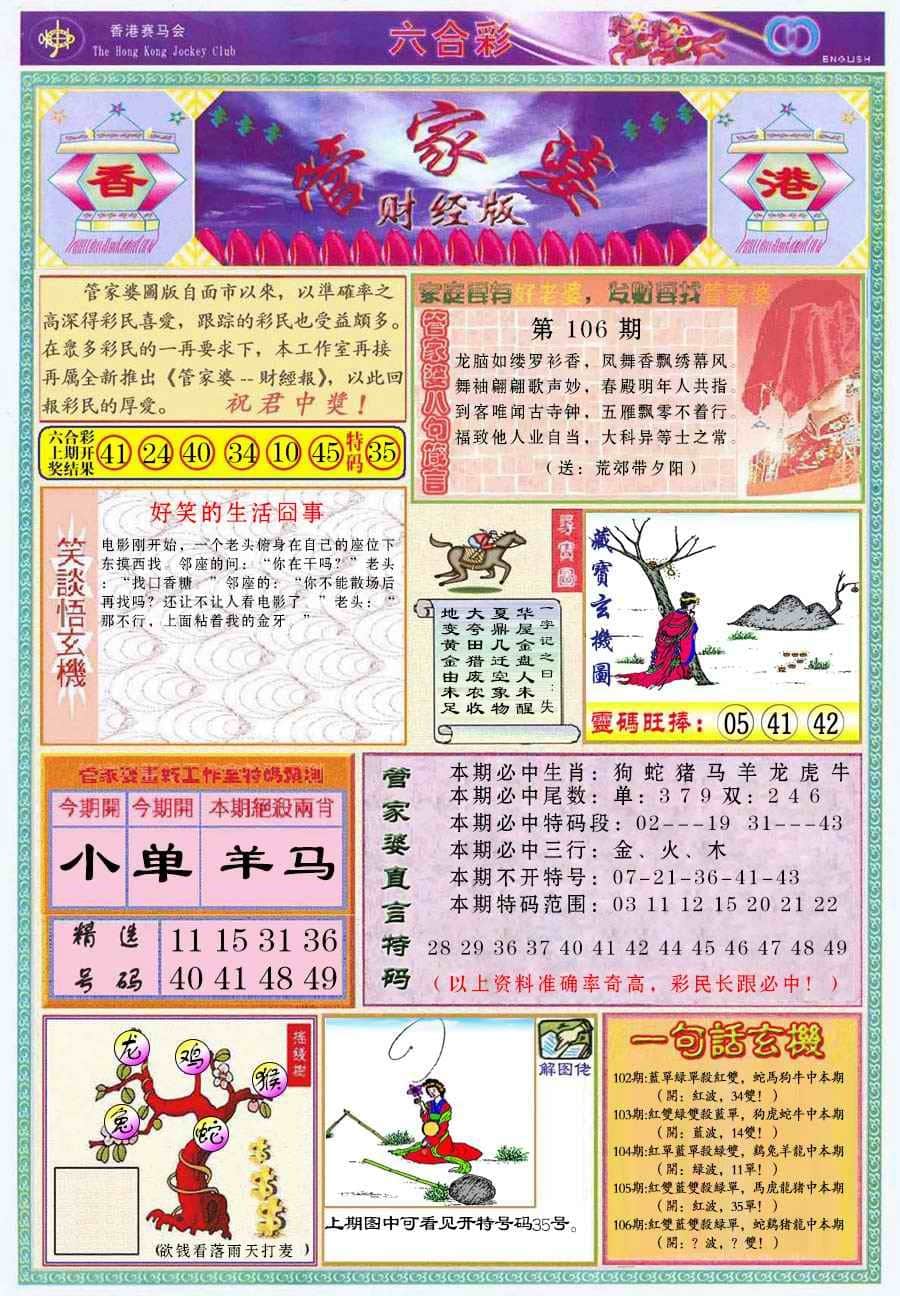 香港赛马会
The Hong Kong Jockey Club
六合彩
ENGLISH
香
管家婆
财经版
港
管家婆圖版自面市以來，以準確率之
高深得彩民喜愛，跟踪的彩民也受益頗多。
在眾多彩民的一再要求下，本工作室再接
再厲全新推出《管家婆--財經報》，以此回
報彩民的厚愛。 祝君中獎！
六合彩
上期开
奖结果
41 24 40 34 10 45 特码 35
家庭要有好老婆，发财要找管家婆
管家婆八句箴言
第 106 期
龙脑如缕罗衫香，凤舞香飘绣幕风。
舞袖翩翩歌声妙，春殿明年人共指。
到客唯闻古寺钟，五雁飘零不着行。
福致他人业自当，大科异等士之常。
（送：荒郊带夕阳）
笑談悟玄機
好笑的生活囧事
电影刚开始，一个老头俯身在自己的座位下
东摸西找。邻座的问：“你在干吗？”老头
：“找口香糖。”邻座的：“你不能散场后
再找吗？还让不让人看电影了。”老头：“
那不行，上面粘着我的金牙。”
尋寶圖
一字记之曰：失
华屋金盘人未醒
夏鼎几迁空象物
大夸田猎废农收
地变黄金由未足
藏寶玄機圖
靈碼旺捧： 05 41 42
管家婆畫戟工作室特碼預測
今期開 今期開 本期絕殺兩肖
小 单 羊马
精选
号码
11 15 31 36
40 41 48 49
管家婆直言特码
本期必中生肖：狗 蛇 猪 马 羊 龙 虎 牛
本期必中尾数：单：3 7 9 双：2 4 6
本期必中特码段：02---19 31---43
本期必中三行：金、火、木
本期不开特号：07-21-36-41-43
本期特码范围：03 11 12 15 20 21 22
28 29 36 37 40 41 42 44 45 46 47 48 49
（以上资料准确率奇高，彩民长跟必中！）
摇錢樹
龙
鸡
猴
兔
蛇
（欲钱看落雨天打麦）
解图佬
上期图中可看见开特号码35号。
一句話玄機
102期:藍單綠單殺紅雙，蛇馬狗牛中本期
（開：紅波，34雙！）
103期:紅雙綠雙殺藍單，狗虎蛇牛中本期
（開：藍波，14雙！）
104期:紅單藍單殺綠雙，鷄兔羊龍中本期
（開：綠波，11單！）
105期:紅雙藍雙殺綠單，馬虎龍猪中本期
（開：紅波，35單！）
106期:紅雙藍雙殺綠單，蛇鷄猪龍中本期
（開：？波，？雙！）